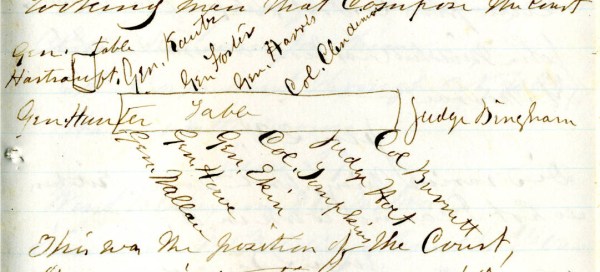 working men that compose the Court
Gen. table
Hartranft. Gen. Kautz Gen Foster Gen. Harris Col. Clendenin
Gen. Hunter Table Judge Bingham
Gen Wallace Gen Howe Gen Ekin Col. Tompkins Judge Holt Col Burnett
This was the position of the Court,